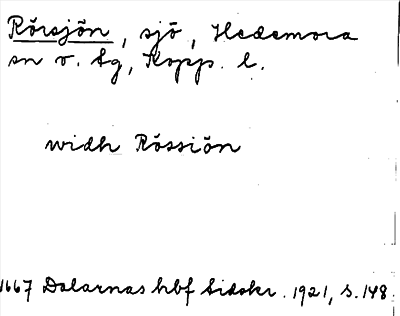 Rörsjön, sjö, Hedemora
sn o. tg, Kopp. l.
widh Rössiön
1667 Dalarnas hbf tidskr. 1921, s. 148.